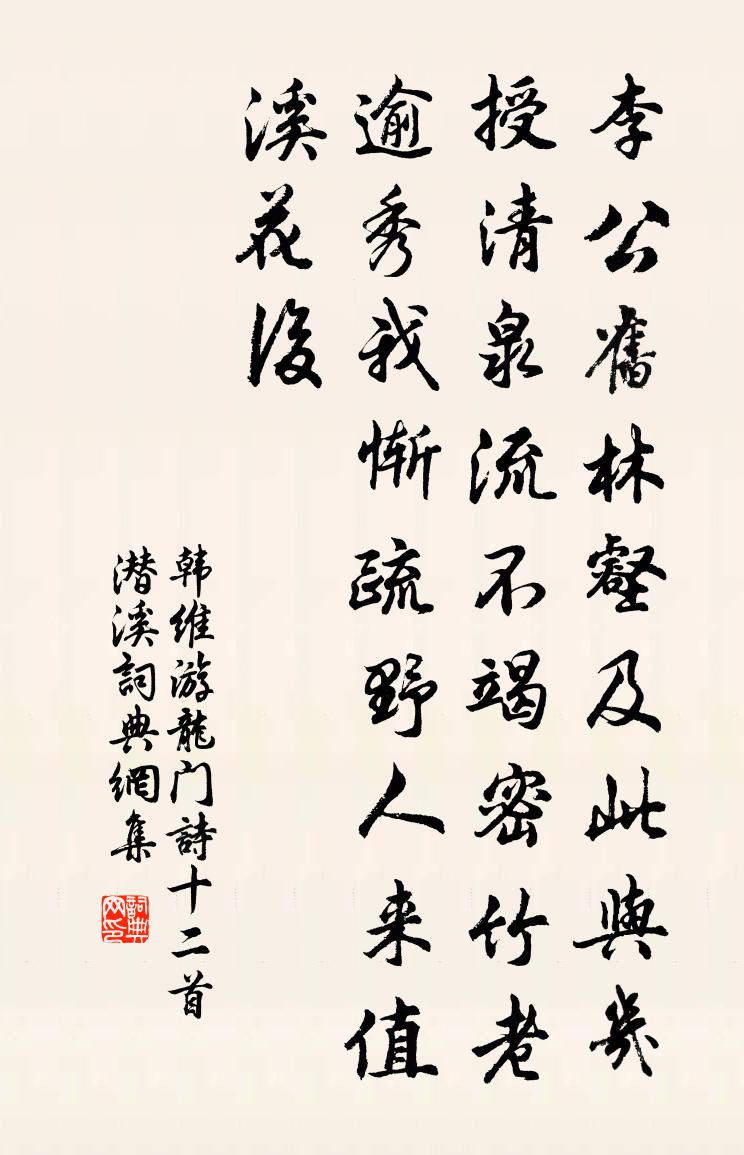 李公舊林壑及此與幾
授清泉流不竭密竹老
逾秀我慚疏野人来值
溪花後
韩维游龍门詩十二首
潜溪詞典網集
詞典网印